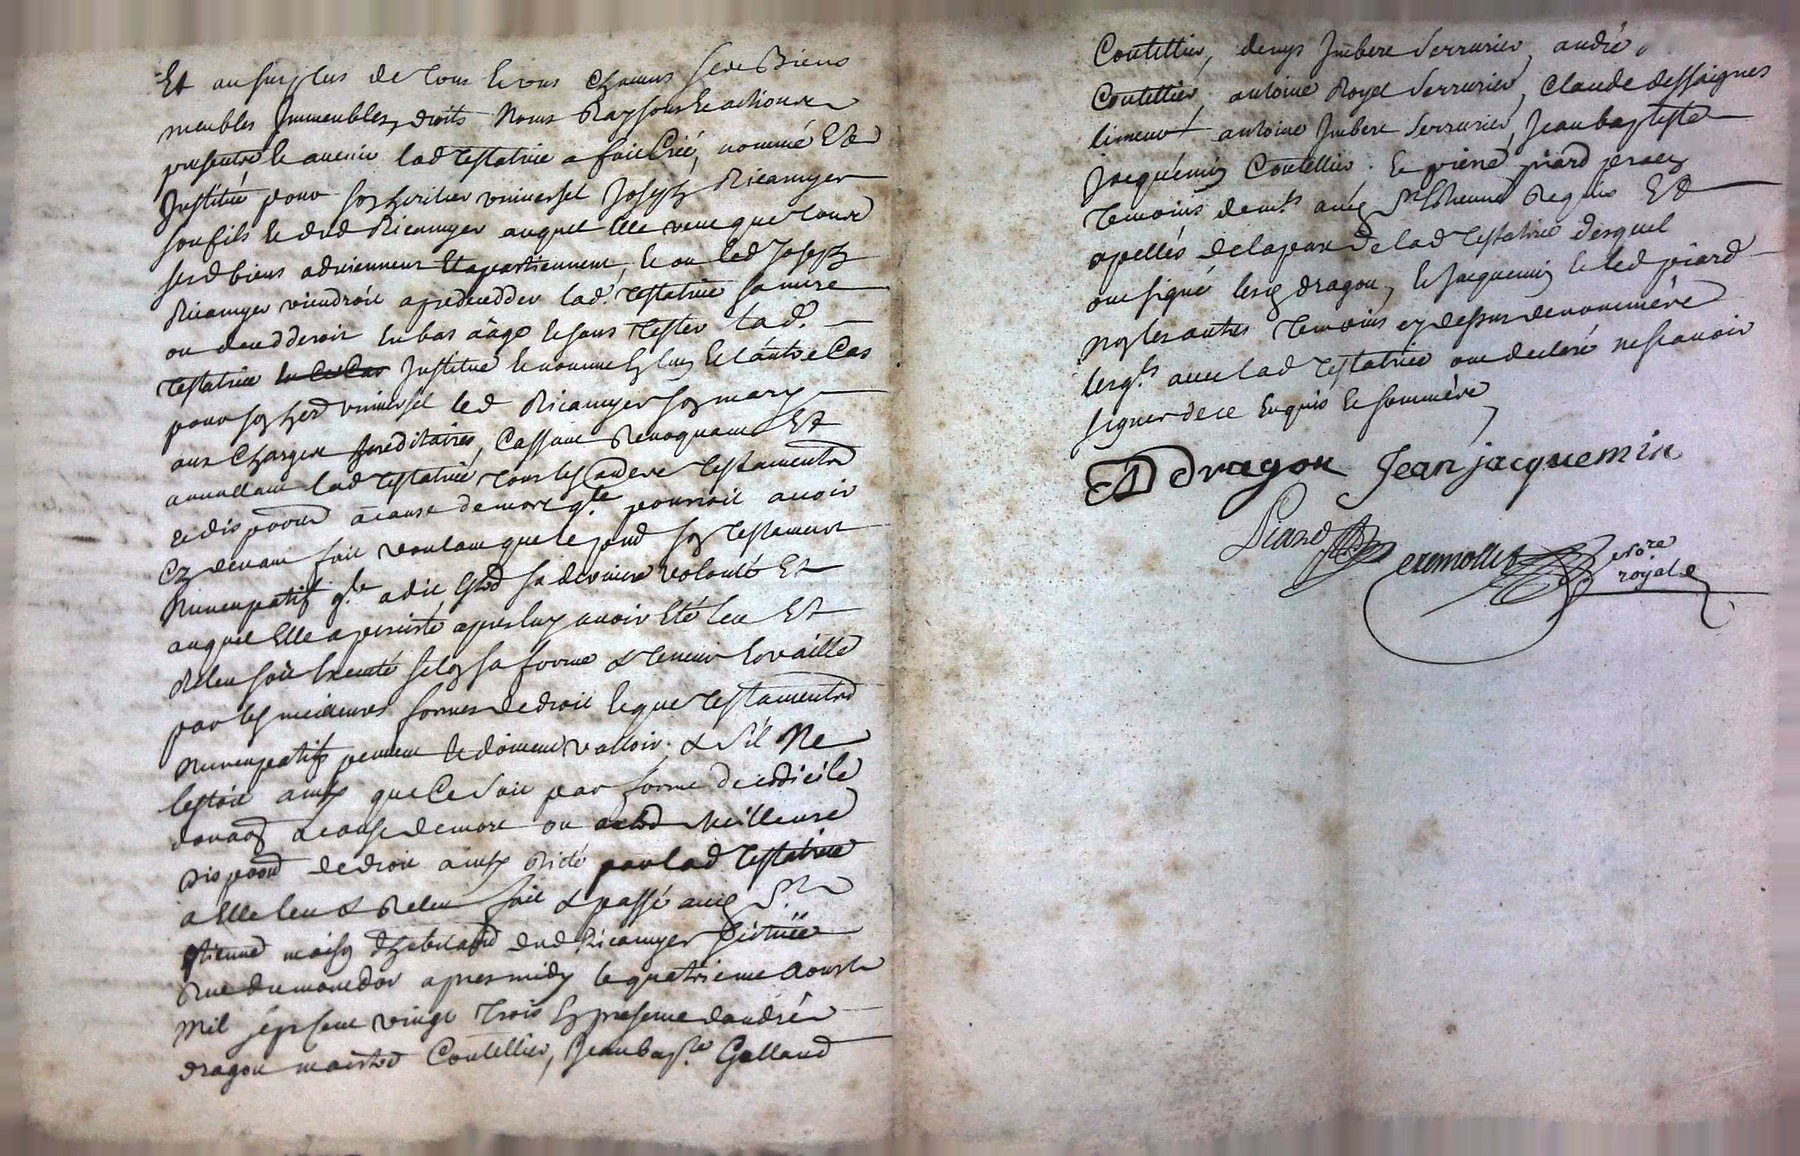 Et au surplus de tous et uns chacuns ses Biens
meubles Immeubles, droits Noms Raysons et actions
presents et avenir lad testatrice a fait Créé, nommé Et
Institué pour son heritier universel Joseph Ricamyer
son fils et dud Ricamyer auquel Elle veut que tous
sesd biens adviennent Et apartiennent, et ou led Joseph
Ricamyer viendroit a predecedder lad. testatrice sa mere
ou decedderoit En bas aâge et sans tester lad.
testatrice Institue et nomme En luy et l'autre Cas
pour son herer universel led Ricamyer son mary
aux Charges hereditaires, Cassant Revoquant Et
annullant lad testatrice tous les
et dispoon a cause de mort qle pourroit avoir
Cy devant fait voulant que le pnt son testament
Nuncupatif qle a dit Estre sa derniere volonté Et
auquel Elle a persisté apres luy avoir Eté leu Et
Releu soit Executé selon sa forme & teneur Et vaille
par les meilleures formes de droit Et que testament
Nuncupatifs peuvent Et doivent valloir, & s'il Ne
lestoit ainsy que Ce soit par forme de codicile
donaon a cause de mort ou autre Meilleure
dispoon de droit ainsy dicté par lad testatrice
a Elle leu & Releu fait & passé audt St
Etienne maison d'habitaon dud Ricamyer scituée
Rue du mont dor apres midy le quatrieme Aoust
Mil sept cent vingt trois En presence d'andré
dragon maistre Coutellier, Jean bapte Galland
Coutellier, denys Imbert Serrurier, andré
Coutellier, antoine Royet Serrurier, Claude dessaignes
limeur antoine Imbert Serrurier, Jean baptiste
Jacquemin Coutellier. Et pierre piard
temoins demts audt St Etienne Requis Et
apellés de la part de lad testatrice desquel
ont signé lesd dragon, Et Jacquemin Et led piard
non les autres temoins cy dessus denommés
lesqls avec lad testatrice ont declaré ne scavoir
signer de ce Enquis Et sommés
AD dragon Jean jacquemin
Piard
nore
royal